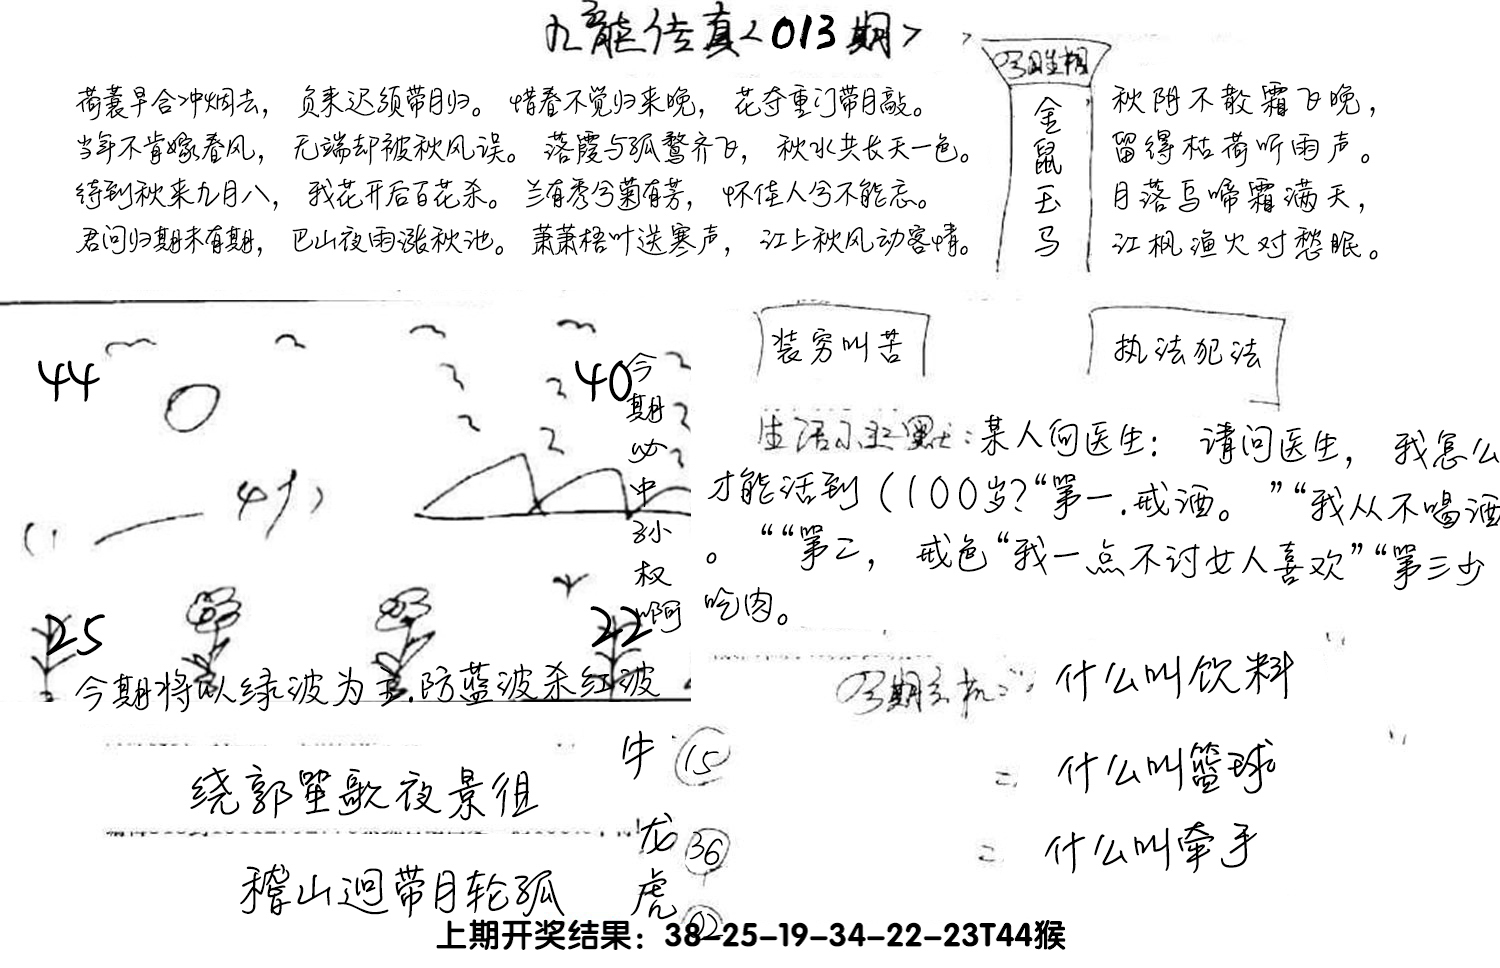 九龙传真<013期>
荷蓑早合冲烟去，负耒迟须带月归。惜春不觉归来晚，花夺重门带月敲。
当年不肯嫁春风，无端却被秋风误。落霞与孤鹜齐飞，秋水共长天一色。
待到秋来九月八，我花开后百花杀。兰有秀兮菊有芳，怀佳人兮不能忘。
君问归期未有期，巴山夜雨涨秋池。萧萧梧叶送寒声，江上秋风动客情。
金
鼠
玉
马
秋阴不散霜飞晚，
留得枯荷听雨声。
月落乌啼霜满天，
江枫渔火对愁眠。
44
40
25
22
今
期
必
中
孙
权
啊
今期将以绿波为主.防蓝波杀红波
装穷叫苦
执法犯法
某人问医生： 请问医生，我怎么
才能活到（100岁？“第一.戒酒。”“我从不喝酒
。““第二，戒色“我一点不讨女人喜欢”“第三少
吃肉。
什么叫饮料
什么叫篮球
什么叫牵手
绕郭笙歌夜景徂
稽山迥带月轮孤
牛 15
龙 36
虎 02
上期开奖结果：38-25-19-34-22-23T44猴